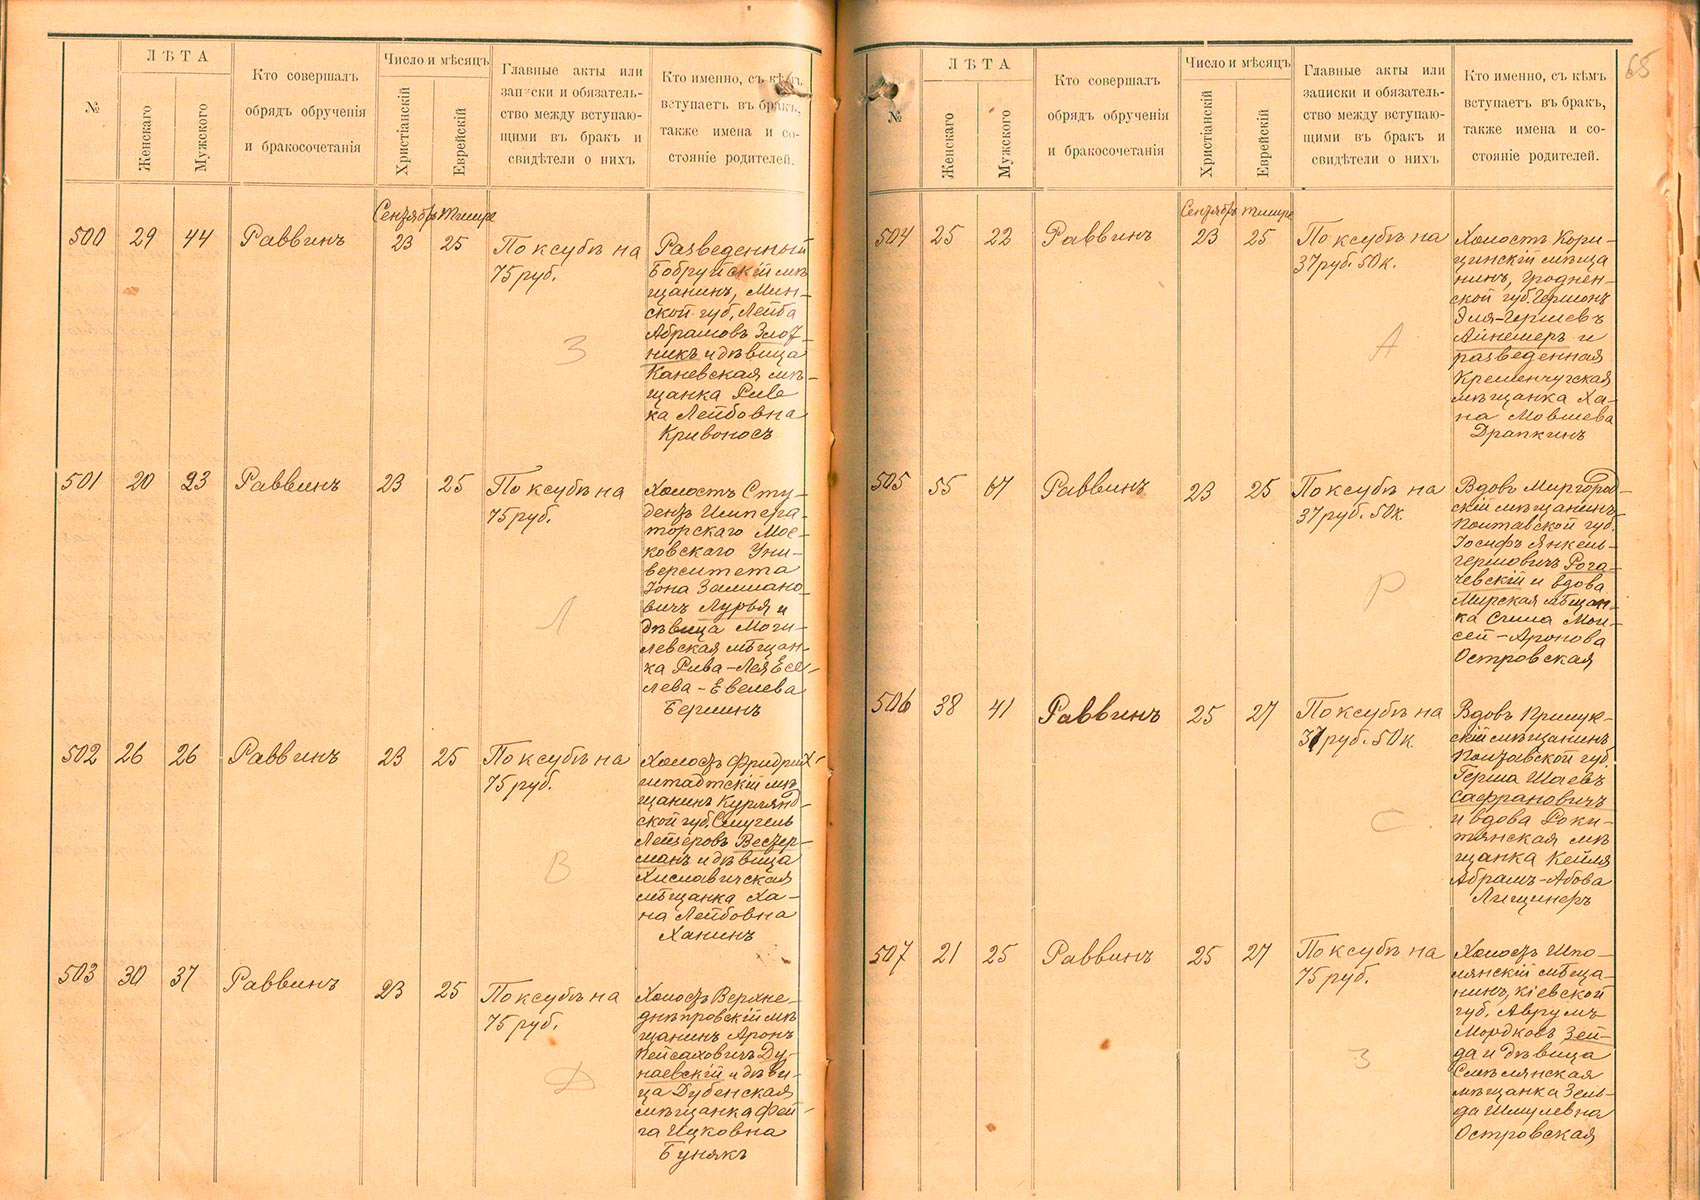 №
ЛѢТА
Женскаго
Мужского
Кто совершалъ
обрядъ обрученія
и бракосочетанія
Число и мѣсяцъ
Христіанскій
Еврейскій
Главные акты или
записки и обязатель-
ство между вступаю-
щими въ бракъ и
свидѣтели о нихъ
Кто именно, съ кѣмъ
вступаетъ въ бракъ,
также имена и со-
стояніе родителей.
Сентябрь Тишре
500 29 44 Раввинъ 23 25
По ксубѣ на
75 руб.
З
Разведенный
Бобруйскій мѣ
щанинъ, Мин-
ской губ, Лейба
Абрамовъ Злот-
никъ и дѣвица
Каневская мѣ-
щанка Риве
ка Лейбовна
Кривоносъ
501 20 23 Раввинъ 23 25
По ксубѣ на
75 руб.
Л
Холостъ Сту-
дентъ Импера-
торскаго Мос-
ковскаго Уни-
верситета
Іона Залмано-
вичъ Лурья и
дѣвица Моги-
левская мѣщан-
ка Рива-Лея Есе-
лева-Евелева
Берлинъ
502 26 26 Раввинъ 23 25
По ксубѣ на
75 руб.
В
Холостъ Фридрих-
штадтскій мѣ
щанинъ Курлянд-
ской губ. Смуель
Лейзеровъ Вестер-
манъ и дѣвица
Хиславичская
мѣщанка Ха-
на Лейбовна
Ханинъ
503 30 37 Раввинъ 23 25
По ксубѣ на
75 руб.
Д
Холостъ Верхне-
днѣпровскій мѣ
щанинъ Аронъ
Пейсаховичъ Ду-
наевскій и дѣви-
ца Дубенская
мѣщанка Фей-
га Ицковна
Бунякъ
65
№
ЛѢТА
Женскаго
Мужского
Кто совершалъ
обрядъ обрученія
и бракосочетанія
Число и мѣсяцъ
Христіанскій
Еврейскій
Главные акты или
записки и обязатель-
ство между вступаю-
щими въ бракъ и
свидѣтели о нихъ
Кто именно, съ кѣмъ
вступаетъ въ бракъ,
также имена и со-
стояніе родителей.
Сентябрь Тишре
504 25 22 Раввинъ 23 25
По ксубѣ на
37 руб. 50 к.
А
Холостъ Кори-
цинскій мѣща
нинъ, Гроднен-
ской губ. Гершонъ
Эля-Гершевъ
Айнемеръ и
разведенная
Кременчугская
мѣщанка Ха-
на Мовшева
Драпкинъ
505 55 67 Раввинъ 23 25
По ксубѣ на
37 руб. 50 к.
Р
Вдовъ Миргород-
скій мѣщанинъ
Полтавской губ.
Іосифъ Янкель-
гершовичъ Рога-
чевскій и вдова
Мирская мѣщан-
ка Сима Мои-
сей-Аронова
Островская
506 38 41 Раввинъ 25 27
По ксубѣ на
37 руб. 50 к.
С
Вдовъ Прилук-
скій мѣщанинъ
Полтавской губ.
Герша Шаевъ
Сафрановичъ
и вдова Роки-
тянская мѣ
щанка Кейля
Абрамъ-Абова
Лищинеръ
507 21 25 Раввинъ 25 27
По ксубѣ на
75 руб.
З
Холостъ Шпо-
лянскій мѣща-
нинъ, Кіевской
губ. Аврумъ
Мордковъ Зей-
да и дѣвица
Смѣлянская
мѣщанка Зель-
да Шмулевна
Островская